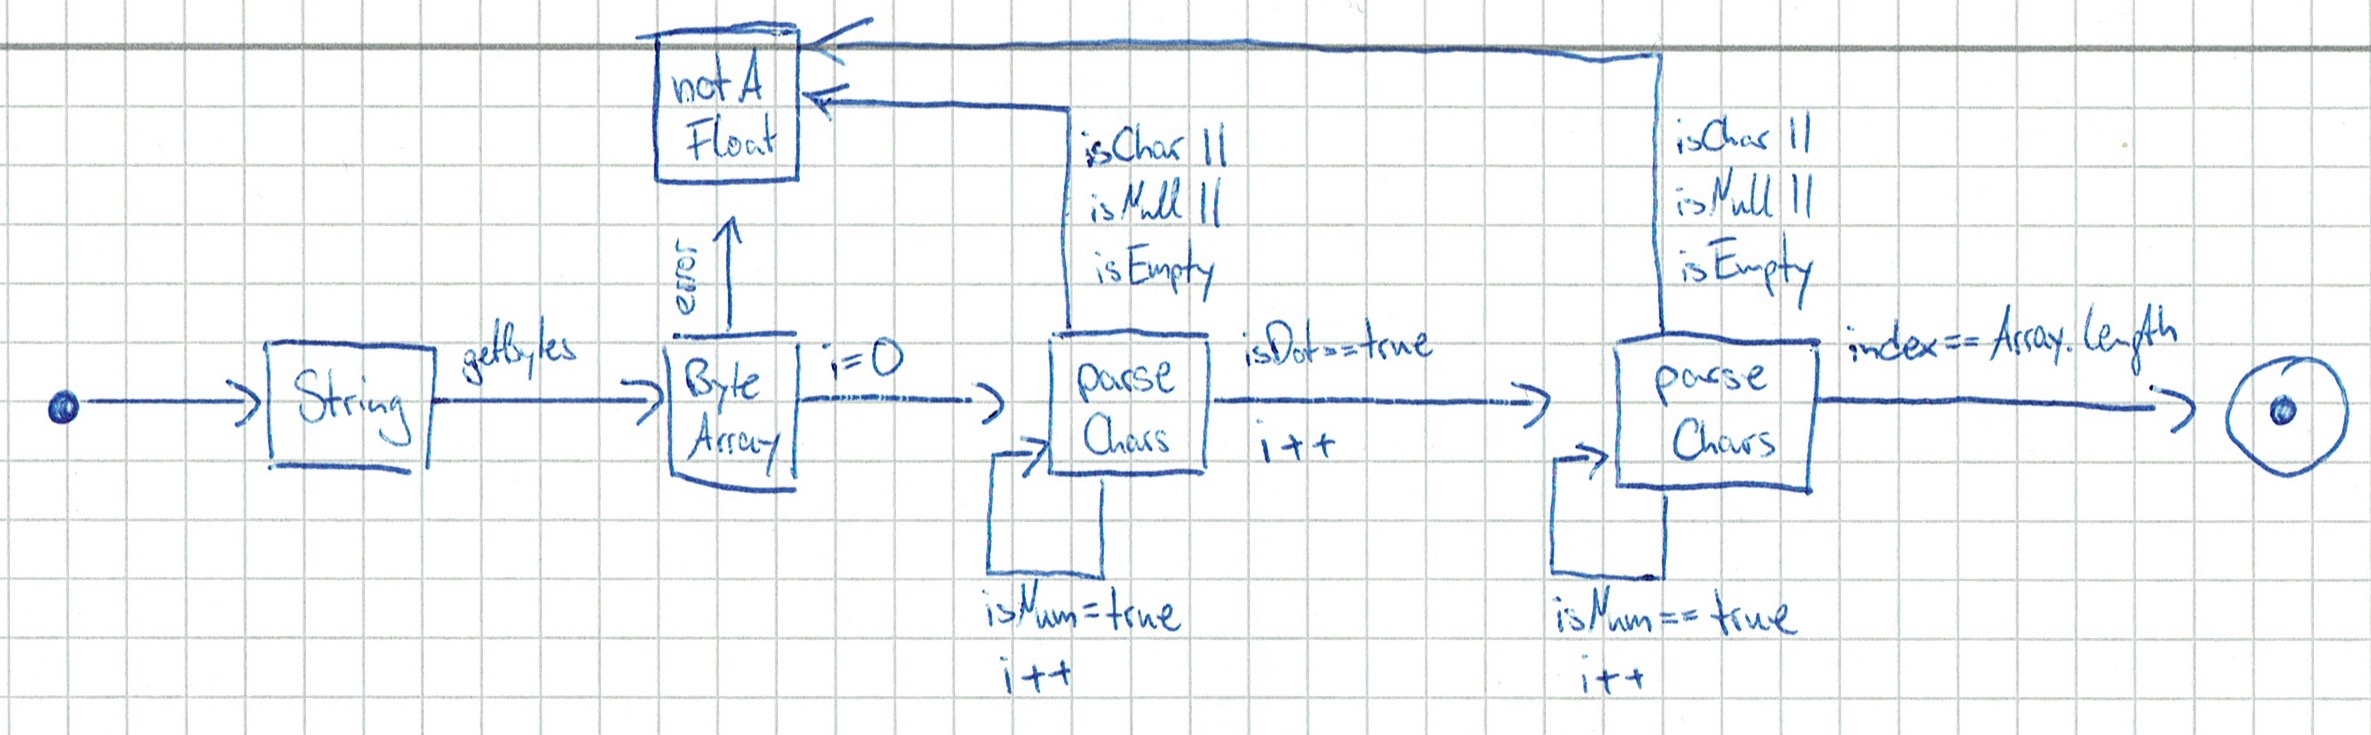 not A
Float
isChar ||
isNull ||
isEmpty
isChar ||
isNull ||
isEmpty
error
String
getbytes
Byte
Array
i=0
parse
Chars
isDot==true
i++
parse
Chars
index== Array.length
isNum=true
i++
isNum== true
i++